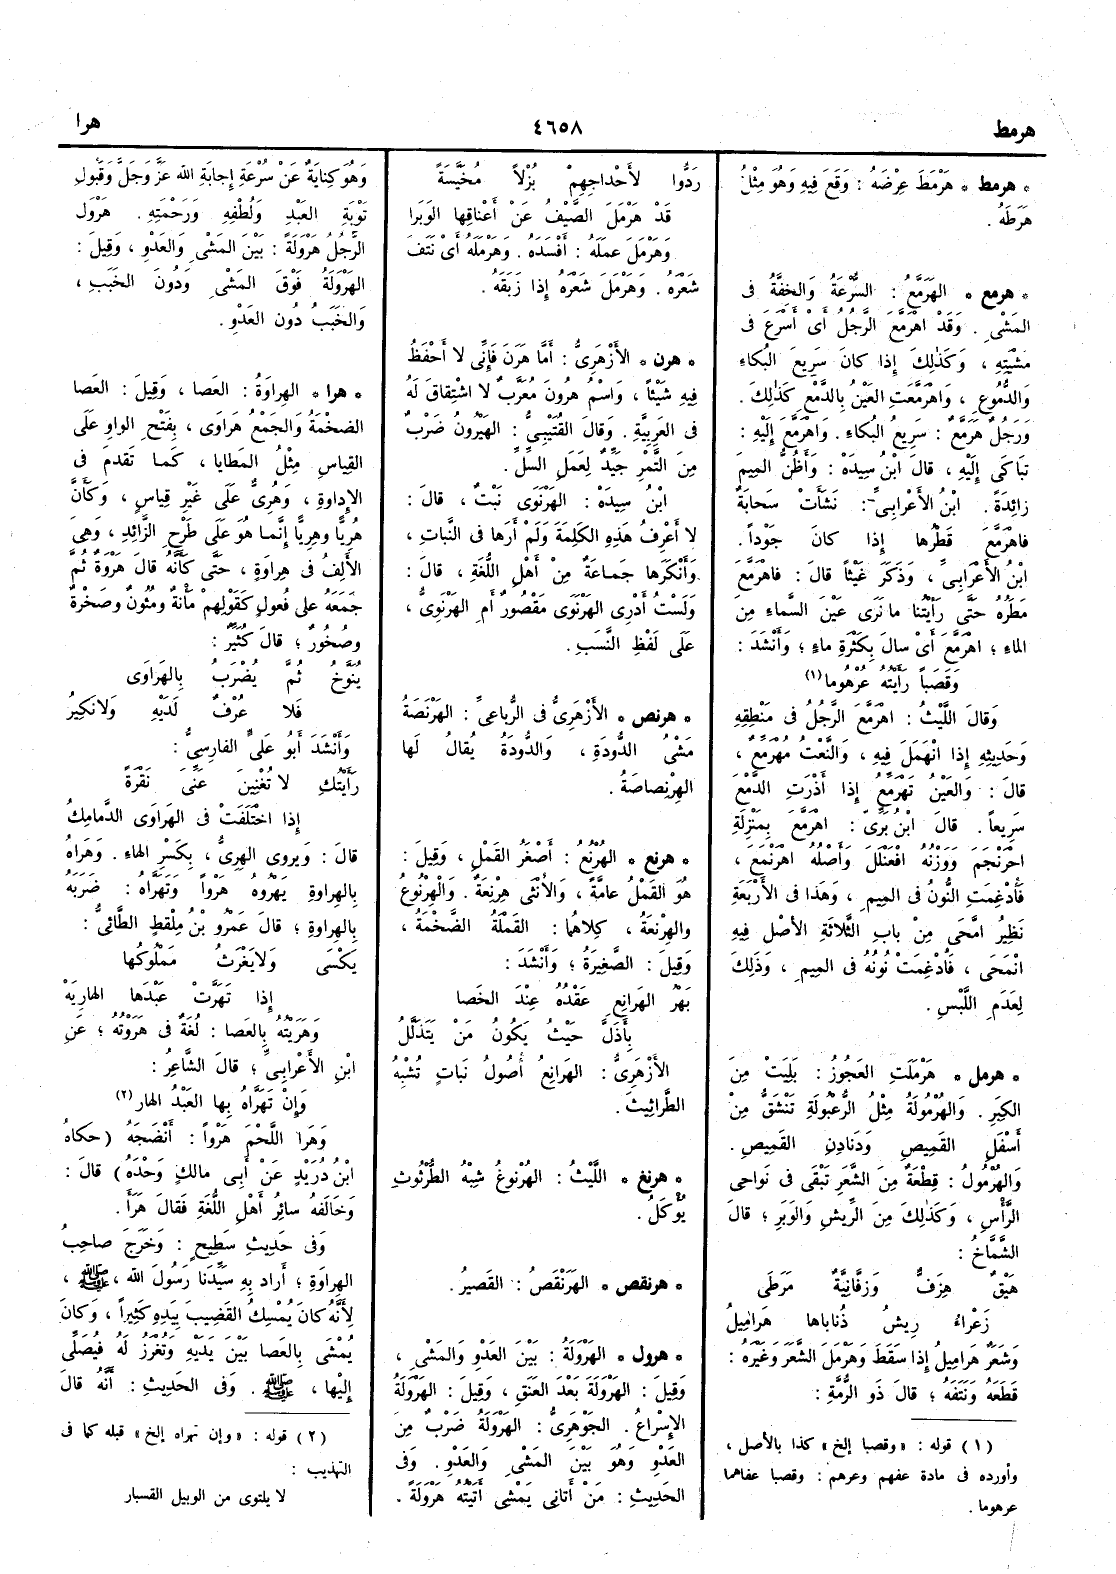 هرمط
٤٦٥٨
هرا
* هرمط * هَرْمَطَ عِرْضَهُ : وَقَعَ فِيهِ وَهُوَ مِثْلُ
هَرَطَهُ .
* هرمع * الهَرَمَّعُ : السُّرْعَةُ وَالخِفَّةُ فى
المَشْىِ . وَقَدْ اهْرَمَّعَ الرَّجُلُ أَىْ أَسْرَعَ فى
مَشْيَتِهِ ، وَكَذٰلِكَ إِذا كانَ سَرِيعَ البُكاءِ
وَالدُّمُوعِ ، وَاهْرَمَّعَتِ العَيْنُ بِالدَّمْعِ كَذٰلِكَ .
وَرَجُلٌ هَرَمَّعٌ : سَرِيعُ البُكاءِ . وَاهْرَمَّعَ إِلَيْهِ :
تَباكَى إِلَيْهِ ، قالَ ابْنُ سِيدَهْ : وَأَظُنُّ المِيمَ
زائِدَةً . ابْنُ الأَعْرابِىِّ : نَشَأَتْ سَحابَةٌ
فاهْرَمَّعَ قَطْرُها إِذا كانَ جَوْداً .
ابْنُ الأَعْرابِىِّ ، وَذَكَرَ غَيْثاً قالَ : فاهْرَمَّعَ
مَطَرُهُ حَتَّى رَأَيْتُنا ما نَرَى عَيْنَ السَّماءِ مِنَ
الماءِ ؛ اهْرَمَّعَ أَىْ سالَ بِكَثْرَةِ ماءٍ ؛ وَأَنْشَدَ :
وَقَصَباً رَأَيْتُهُ عُرْهُوما(١)
وَقالَ اللَّيْثُ : اهْرَمَّعَ الرَّجُلُ فى مَنْطِقِهِ
وَحَدِيثِهِ إِذا انْهَمَلَ فِيهِ ، وَالنَّعْتُ مُهْرَمِّعٌ ،
قالَ : وَالعَيْنُ تَهْرَمِّعُ إِذا أَذْرَتِ الدَّمْعَ
سَرِيعاً . قالَ ابْنُ بَرِّىّ : اهْرَمَّعَ بِمَنْزِلَةِ
احْرَنْجَمَ وَوَزْنُهُ افْعَنْلَلَ وَأَصْلُهُ اهْرَنْمَعَ ،
فَأُدْغِمَتِ النُّونُ فى المِيمِ ، وَهَذا فى الأَرْبَعَةِ
نَظِيرُ امَّحَى مِنْ بابِ الثَّلاثَةِ الأَصْل فِيهِ
انْمَحَى ، فَأُدْغِمَتْ نُونُهُ فى المِيمِ ، وَذَلِكَ
لِعَدَمِ اللَّبْسِ .
* هرمل * هَرْمَلَتِ العَجُوزُ : بَلِيَتْ مِنَ
الكِبَرِ . وَالهُرْمُولَةُ مِثْلُ الرُّعْبُولَةِ تَنْشَقُّ مِنْ
أَسْفَلِ القَمِيصِ وَدَنادِنِ القَمِيصِ .
وَالهُرْمُولُ : قِطْعَةٌ مِنَ الشَّعَرِ تَبْقَى فى نَواحِى
الرَّأْسِ ، وَكَذَلِكَ مِنَ الرِّيشِ وَالوَبَرِ ؛ قالَ
الشَّمَّاخُ :
هَيْقٌ هِزَفٌّ وَزِفَّانِيَّةٌ مَرَطَى
زَعْراءُ رِيشُ ذُناباها هَرامِيلُ
وَشَعَرٌ هَرامِيلُ إِذا سَقَطَ وَهَرْمَلَ الشَّعَرَ وَغَيْرَهُ :
قَطَعَهُ وَنَتَفَهُ ؛ قالَ ذُو الرُّمَّةِ :
(١) قوله : «وقصبا إلخ» كذا بالأصل ،
وأورده فى مادة عفهم وعرهم : وقصبا عفاهما
عرهوما .
رَدُّوا لأَحْداجِهِمْ بُزْلاً مُخَيَّسَةً
قَدْ هَرْمَلَ الصَّيْفُ عَنْ أَعْناقِها الوَبَرا
وَهَرْمَلَ عَمَلَهُ : أَفْسَدَهُ . وَهَرْمَلَهُ أَىْ نَتَفَ
شَعَرَهُ . وَهَرْمَلَ شَعَرَهُ إِذا زَبَقَهُ .
* هرن * الأَزْهَرِىُّ : أَمَّا هَرَنَ فَإِنِّى لا أَحْفَظُ
فِيهِ شَيْئاً ، وَاسْمُ هٰرُونَ مُعَرَّبٌ لا اشْتِقاقَ لَهُ
فى العَرَبِيَّةِ . وَقالَ القُتَيْبِىُّ : الهَيْرُونُ ضَرْبٌ
مِنَ التَّمْرِ جَيِّدٌ لِعَمَلِ السَّلِّ .
ابْنُ سِيدَهْ : الهَرْنَوَى نَبْتٌ ، قالَ :
لا أَعْرِفُ هَذِهِ الكَلِمَةَ وَلَمْ أَرَها فى النَّباتِ ،
وَأَنْكَرَها جَماعَةٌ مِنْ أَهْلِ اللُّغَةِ ، قالَ :
وَلَسْتُ أَدْرِى الهَرْنَوَى مَقْصُورٌ أَمِ الهَرْنَوِىُّ ،
عَلَى لَفْظِ النَّسَبِ .
* هرنص * الأَزْهَرِىُّ فى الرُّباعِىِّ : الهَرْنَصَةُ
مَشْىُ الدُّودَةِ ، وَالدُّودَةُ يُقالُ لَها
الهِرْنِصاصَةُ .
* هرنع * الهُرْنُعُ : أَصْغَرُ القَمْلِ ، وَقِيلَ :
هُوَ القَمْلُ عامَّةً ، وَالأُنْثَى هِرْنِعَةٌ . وَالهُرْنُوعُ
والهِرْنعَةُ ، كِلاهُما : القَمْلَةُ الضَّخْمَةُ ،
وَقِيلَ : الصَّغِيرَةُ ؛ وَأَنْشَدَ :
يَهْزُ الهَرانِعِ عَقْدُهُ عِنْدَ الخَصا
بِأَذَلَّ حَيْثُ يَكُونُ مَنْ يَتَذَلَّلُ
الأَزْهَرِىُّ : الهَرانِعُ أُصُولُ نَباتٍ تُشْبِهُ
الطَّراثِيثَ .
* هرنغ * اللَّيْثُ : الهُرْنوغُ شِبْهُ الطُّرْثُوثِ
يُؤْكَلُ .
* هرنقص * الهَرَنْقَصُ : القَصِيرُ .
* هرول * الهَرْوَلَةُ : بَيْنَ العَدْوِ وَالمَشْىِ ،
وَقِيلَ : الهَرْوَلَةُ بَعْدَ العَنَقِ ، وَقِيلَ : الهَرْوَلَةُ
الإِسْراعُ . الجَوْهَرِىُّ : الهَرْوَلَةُ ضَرْبٌ مِنَ
العَدْوِ وَهُوَ بَيْنَ المَشْىِ وَالعَدْوِ . وَفى
الحَدِيثِ : مَنْ أَتانِى يَمْشِى أَتَيْتُهُ هَرْوَلَةً .
وَهُوَ كِنايَةٌ عَنْ سُرْعَةِ إِجابَةِ الله عَزَّ وَجَلَّ وَقَبُولِ
تَوْبَةِ العَبْدِ وَلُطْفِهِ وَرَحْمَتِهِ . هَرْوَلَ
الرَّجُلُ هَرْوَلَةً : بَيْنَ المَشْىِ وَالعَدْوِ ، وَقِيلَ :
الهَرْوَلَةُ فَوْقَ المَشْىِ وَدُونَ الخَبَبِ ،
وَالخَبَبُ دُون العَدْوِ .
* هرا * الهِراوَةُ : العَصا ، وَقِيلَ : العَصا
الضَخْمَةُ وَالجَمْعُ هَراوَى ، بِفَتْحِ الواوِ عَلَى
القِياسِ مِثْلُ المَطايا ، كَما تَقَدمَ فى
الإِداوةِ ، وَهُرِىٌّ عَلَى غَيْرِ قِياسٍ ، وَكَأَنَّ
هُرِيًّا وهِرِيًّا إِنَّما هُوَ عَلَى طَرْحِ الزَّائِدِ ، وَهِىَ
الأَلِفُ فى هِراوَةٍ ، حَتَّى كَأَنَّهُ قالَ هَرْوَةٌ ثُمَّ
جَمَعَهُ عَلى فُعولٍ كَقَوْلِهِمْ مَأْنةٌ ومُئونٌ وصَخْرةٌ
وصُخُورٌ ؛ قالَ كُثَيِّرٌ :
يُنَوَّخُ ثُمَّ يُضْرَبُ بِالهَراوَى
فَلا عُرْفٌ لَدَيْهِ وَلا نَكِيرُ
وَأَنْشَدَ أَبُو عَلىٍّ الفارِسِىُّ :
رَأَيْتُكِ لا تُغْنِينَ عَنِّىَ نَقْرَةً
إِذا اخْتَلَفَتْ فى الهَراوَى الدَّمامِكُ
قالَ : وَيروى الهِرِىُّ ، بِكَسْرِ الهاءِ . وَهَراهُ
بِالهِراوةِ يَهْرُوهُ هَرْواً وَتَهَرَّاهُ : ضَرَبَهُ
بِالهِراوةِ ؛ قالَ عَمْرُو بْنُ مِلْقَطٍ الطَّائِىُّ :
يَكْسَى وَلا يَغْرَثُ مَمْلُوكُها
إِذا تَهَرَّتْ عَبْدَها الهارِيَهْ
وَهَرَيْتُهُ بِالعَصا : لُغَةٌ فى هَرَوْتُهُ ؛ عَنِ
ابْنِ الأَعْرابِىِّ ؛ قالَ الشَّاعِرُ :
وَإِنْ تَهَرَّاهُ بِها العَبْدُ الهار(٢)
وَهَرَا اللَّحْمَ هَرْواً : أَنْضَجَهُ (حكاهُ
ابْنُ دُرَيْدٍ عَنْ أَبِى مالكٍ وَحْدَهُ) قالَ :
وَخالَفَه سائِرُ أَهْلِ اللُّغَةِ فَقالَ هَرَأَ .
وَفى حَدِيثِ سَطِيحٍ : وَخَرَجَ صاحِبُ
الهِراوَةِ ؛ أَرادَ بِهِ سَيِّدَنا رَسُولَ الله ، ﷺ ،
لأَنَّهُ كانَ يُمْسِكُ القَضِيبَ بِيَدِهِ كَثِيراً ، وَكانَ
يُمْشَى بِالعَصا بَيْنَ يَدَيْهِ وَتُغْرَزُ لَهُ فَيُصَلِّى
إِلَيْها ، ﷺ . وَفى الحَدِيثِ : أَنَّهُ قالَ
(٢) قوله : «وإن تهراه إلخ» قبله كما فى
التهذيب :
لا يلتوى من الوبيل القسبار